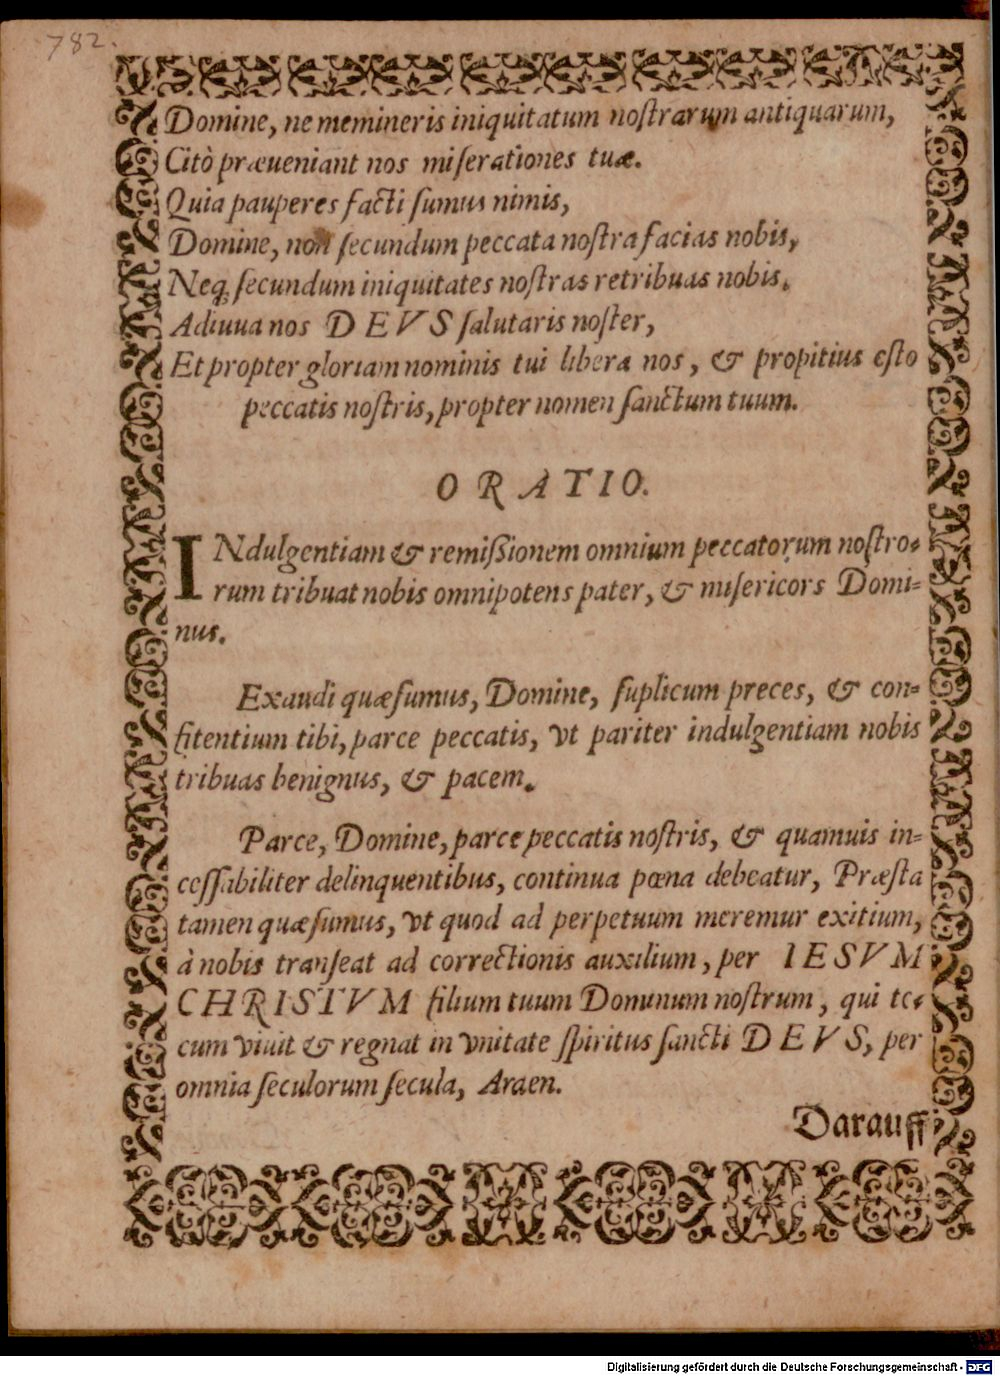 782.
Domine, ne memineris iniquitatum noſtrarum antiquarum,
Citò præueniant nos miſerationes tuæ.
Quia pauperes facti ſumus nimis,
Domine, non ſecundum peccata noſtra facias nobis,
Neq; ſecundum iniquitates noſtras retribuas nobis.
Adiuua nos DEVS ſalutaris noſter,
Et propter gloriam nominis tui libera nos, & propitius eſto
peccatis noſtris, propter nomen ſanctum tuum.
ORATIO.
INdulgentiam & remiſsionem omnium peccatorum noſtro-
rum tribuat nobis omnipotens pater, & miſericors Domi-
nus.
Exaudi quæſumus, Domine, ſuplicum preces, & con-
fitentium tibi, parce peccatis, vt pariter indulgentiam nobis
tribuas benignus, & pacem.
Parce, Domine, parce peccatis noſtris, & quamuis in-
ceſſabiliter delinquentibus, continua pœna debeatur, Præſta
tamen quæſumus, vt quod ad perpetuum meremur exitium,
à nobis tranſeat ad correctionis auxilium, per IESVM
CHRISTVM filium tuum Dominum noſtrum, qui te-
cum viuit & regnat in vnitate ſpiritus ſancti DEVS, per
omnia ſeculorum ſecula, Araen.
Darauff
Digitalisierung gefördert durch die Deutsche Forschungsgemeinschaft - DFG